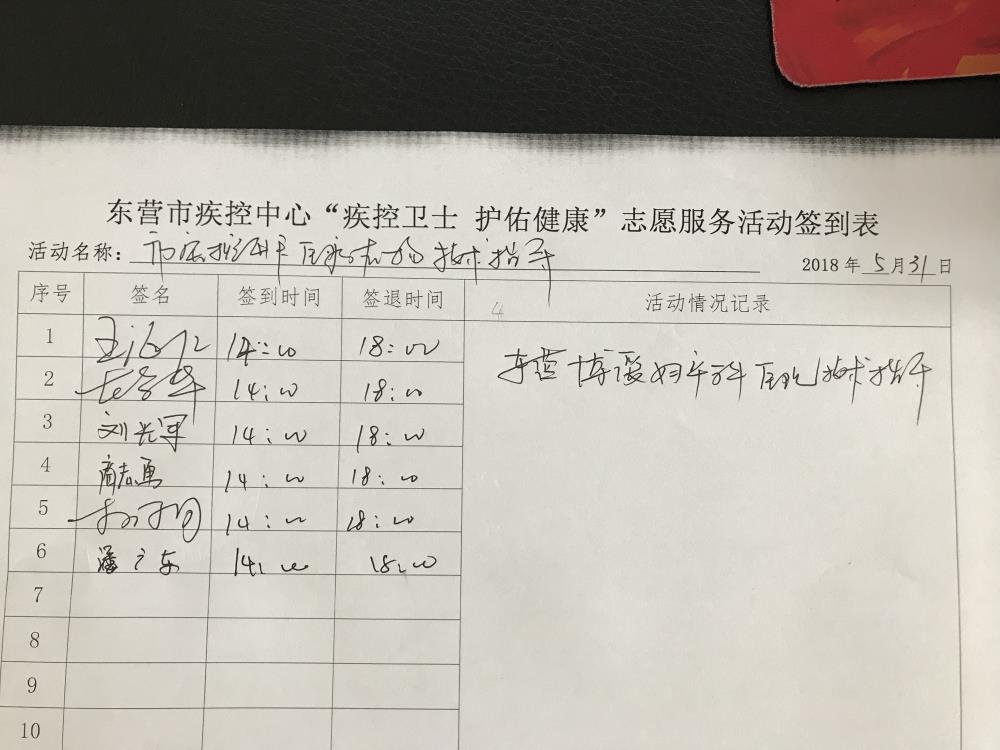 东营市疾控中心“疾控卫士 护佑健康”志愿服务活动签到表
活动名称：市疾控中心 技术指导 2018年5月31日
序号 签名 签到时间 签退时间 活动情况记录
1 14:00 18:00 东营博爱妇产科医院技术指导
2 14:00 18:00
3 刘光军 14:00 18:00
4 商志勇 14:00 18:00
5 14:00 18:00
6 潘广东 14:00 18:00
7
8
9
10